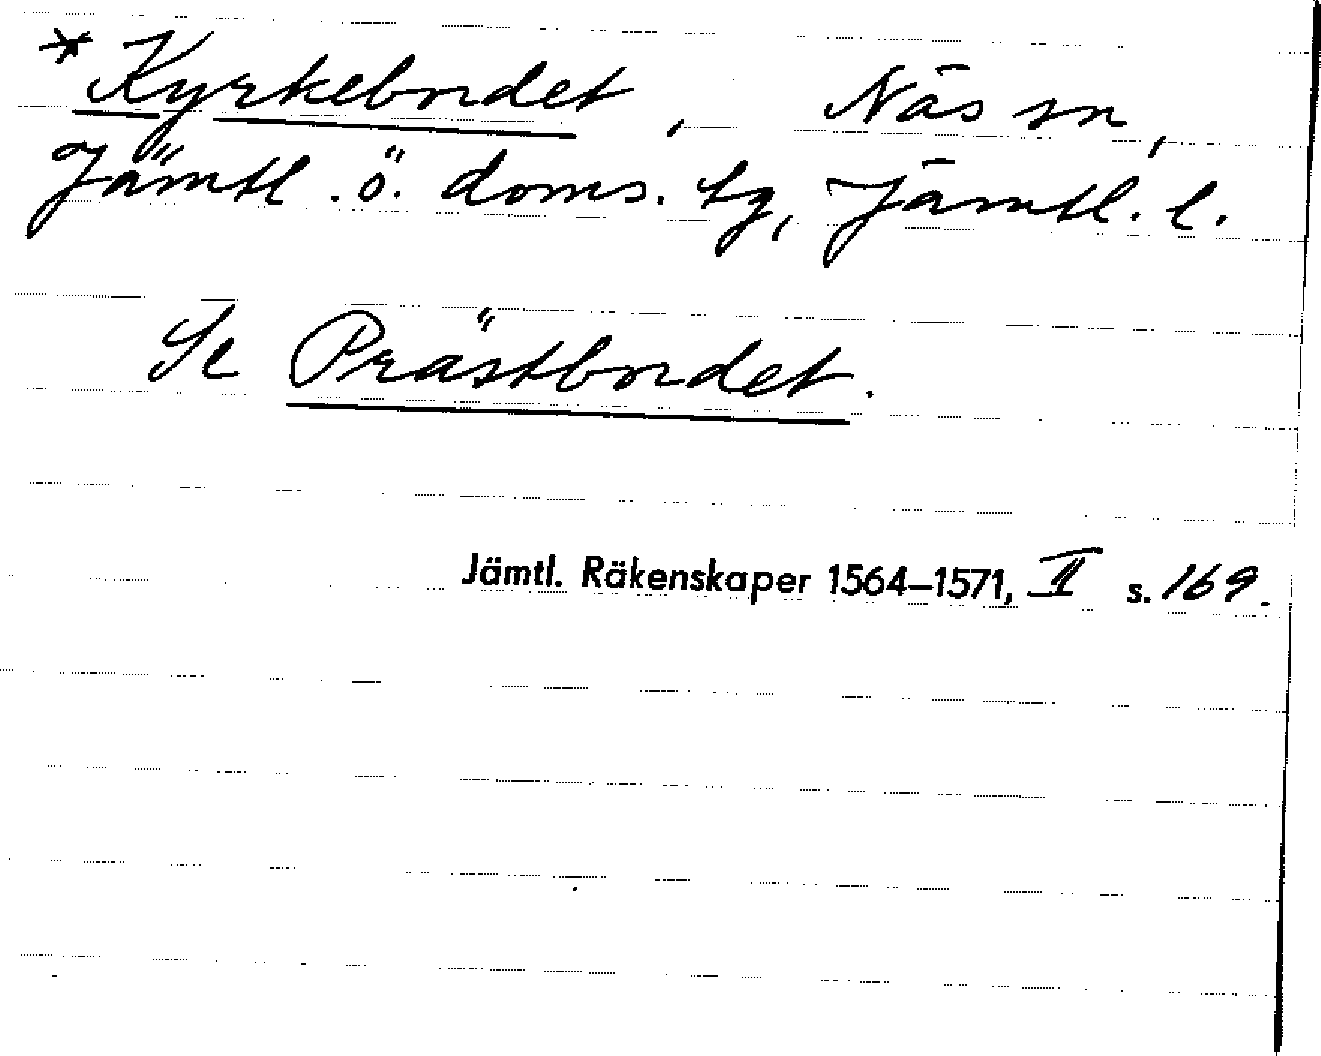 * Kyrkebordet, Näs sn,
Jämtl. ö. doms. tg, Jämtl. l.
Se Prästbordet.
Jämtl. Räkenskaper 1564–1571, II s. 169.